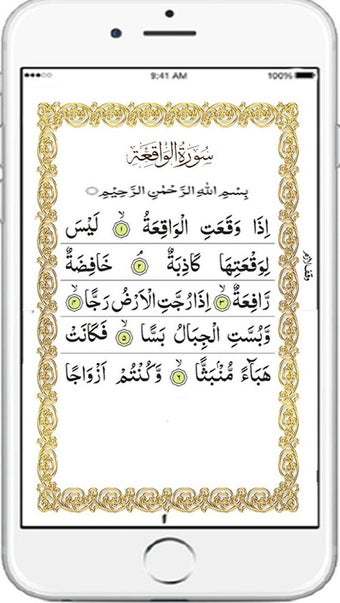 9:41 AM 100%
سُورَةُ الْوَاقِعَة
بِسْمِ اللهِ الرَّحْمٰنِ الرَّحِيْمِ
اِذَا وَقَعَتِ الْوَاقِعَةُ ۙ﴿۱﴾ لَيْسَ
لِوَقْعَتِهَا كَاذِبَةٌ ۘ﴿۲﴾ خَافِضَةٌ
رَّافِعَةٌ ۙ﴿۳﴾ اِذَا رُجَّتِ الْاَرْضُ رَجًّا ۙ﴿۴﴾
وَّبُسَّتِ الْجِبَالُ بَسًّا ۙ﴿۵﴾ فَكَانَتْ
هَبَآءً مُّنْۢبَثًّا ۙ﴿۶﴾ وَّكُنْتُمْ اَزْوَاجًا